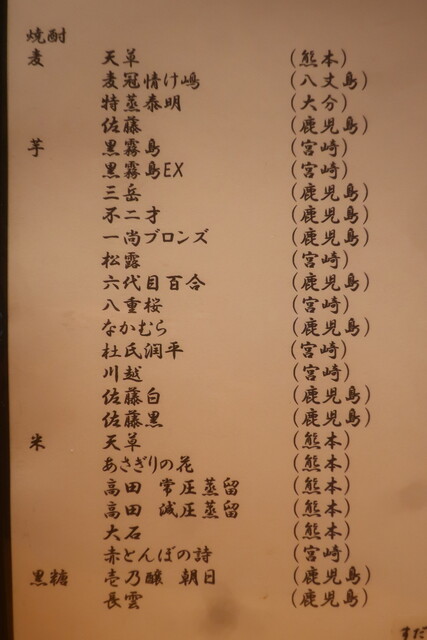 焼酎
麦 天草 (熊本)
麦冠情け嶋 (八丈島)
特蒸泰明 (大分)
佐藤 (鹿児島)
芋 黒霧島 (宮崎)
黒霧島EX (宮崎)
三岳 (鹿児島)
不二才 (鹿児島)
一尚ブロンズ (鹿児島)
松露 (宮崎)
六代目百合 (鹿児島)
八重桜 (宮崎)
なかむら (鹿児島)
杜氏潤平 (宮崎)
川越 (宮崎)
佐藤白 (鹿児島)
佐藤黒 (鹿児島)
米 天草 (熊本)
あさぎりの花 (熊本)
高田 常圧蒸留 (熊本)
高田 減圧蒸留 (熊本)
大石 (熊本)
赤とんぼの詩 (宮崎)
黒糖 壱乃醸 朝日 (鹿児島)
長雲 (鹿児島)
すだ